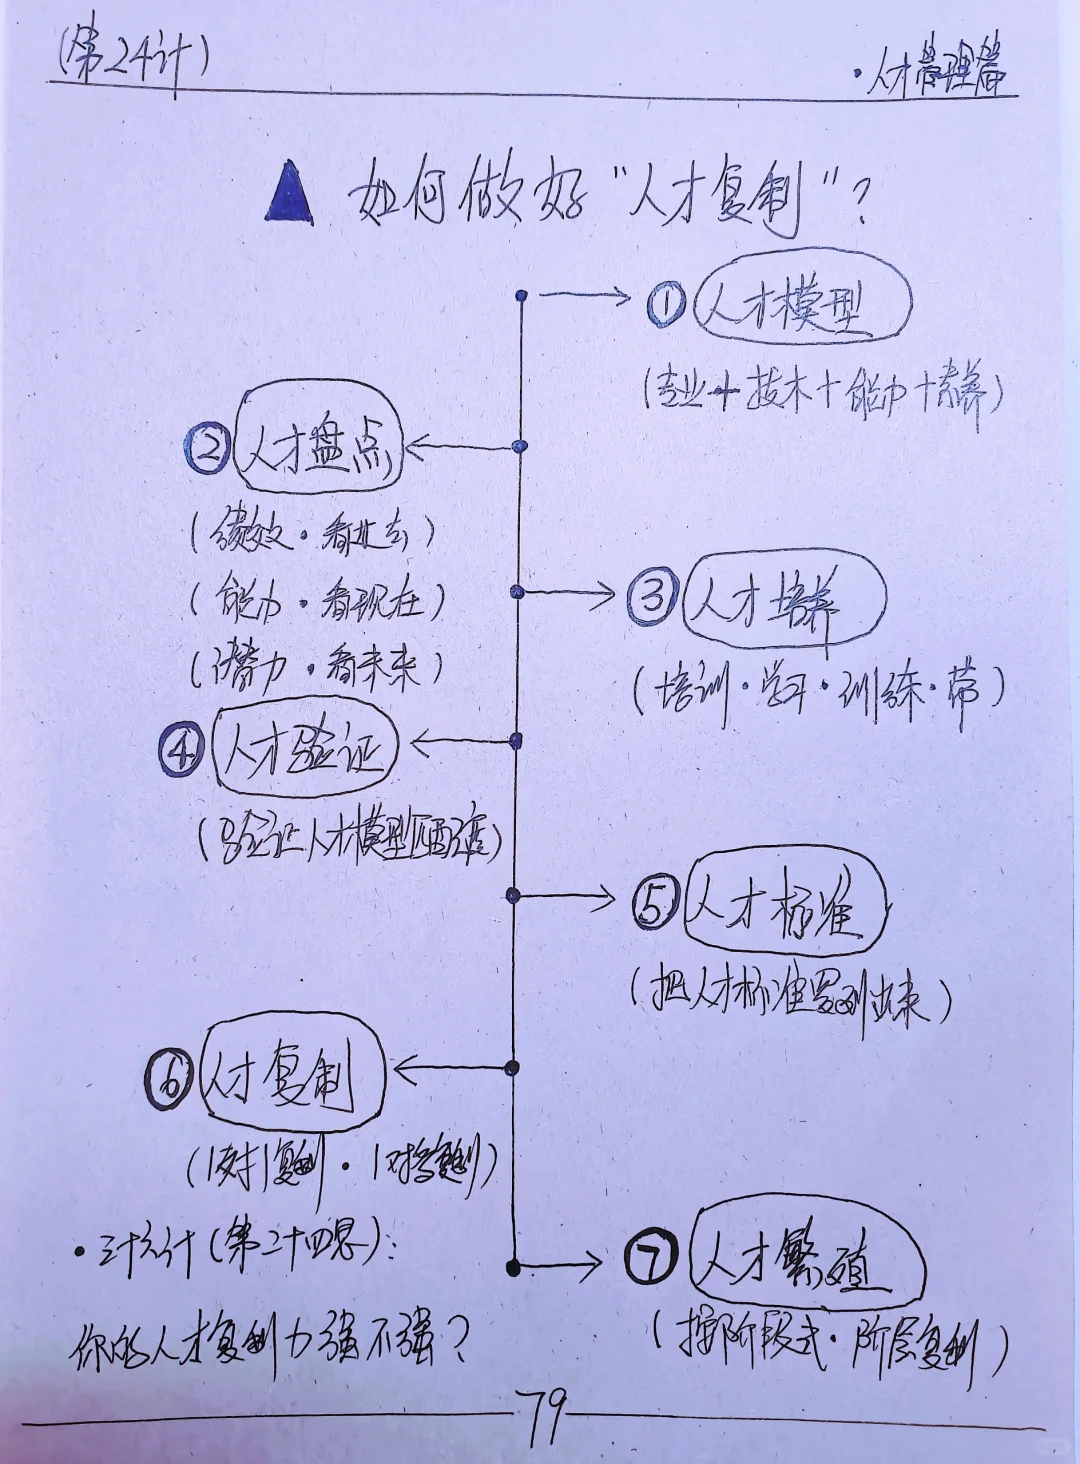 (第24计)
·人才管理篇
▲ 如何做好"人才复制"?
① 人才模型
(专业+技术+能力+素养)
② 人才盘点
(绩效·看过去)
(能力·看现在)
(潜力·看未来)
③ 人才培养
(培训·学习·训练·带)
④ 人才验证
(验证人才模型匹配度)
⑤ 人才标准
(把人才标准罗列出来)
⑥ 人才复制
(1对1复制·1对多复制)
⑦ 人才繁殖
(按阶段式·阶层复制)
·三十六计(第二十四思):
你的人才复制力强不强?
79